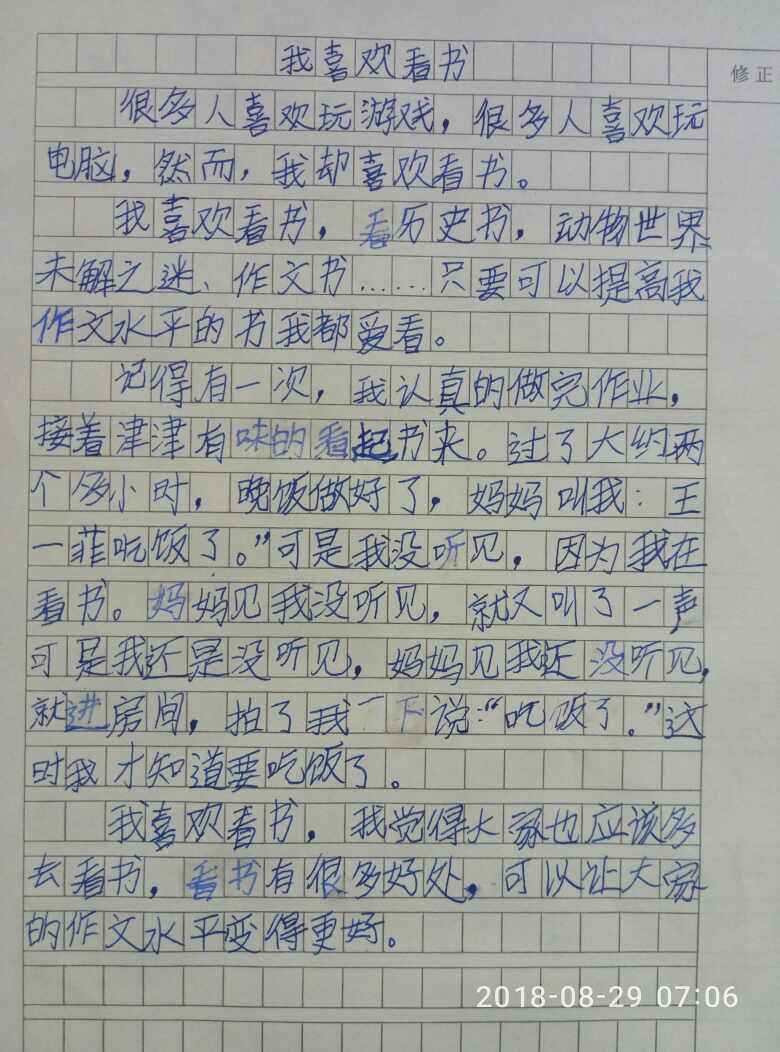 我喜欢看书
修正
很多人喜欢玩游戏，很多人喜欢玩
电脑，然而，我却喜欢看书。
我喜欢看书，看历史书，动物世界
未解之迷、作文书……只要可以提高我
作文水平的书我都爱看。
记得有一次，我认真的做完作业，
接着津津有味的看起书来。过了大约两
个多小时，晚饭做好了，妈妈叫我：王
一菲吃饭了。”可是我没听见，因为我在
看书。妈妈见我没听见，就又叫了一声
可是我还是没听见，妈妈见我还没听见，
就进房间，拍了我一下说：“吃饭了。”这
时我才知道要吃饭了。
我喜欢看书，我觉得大家也应该多
去看书，看书有很多好处，可以让大家
的作文水平变得更好。
2018-08-29 07:06